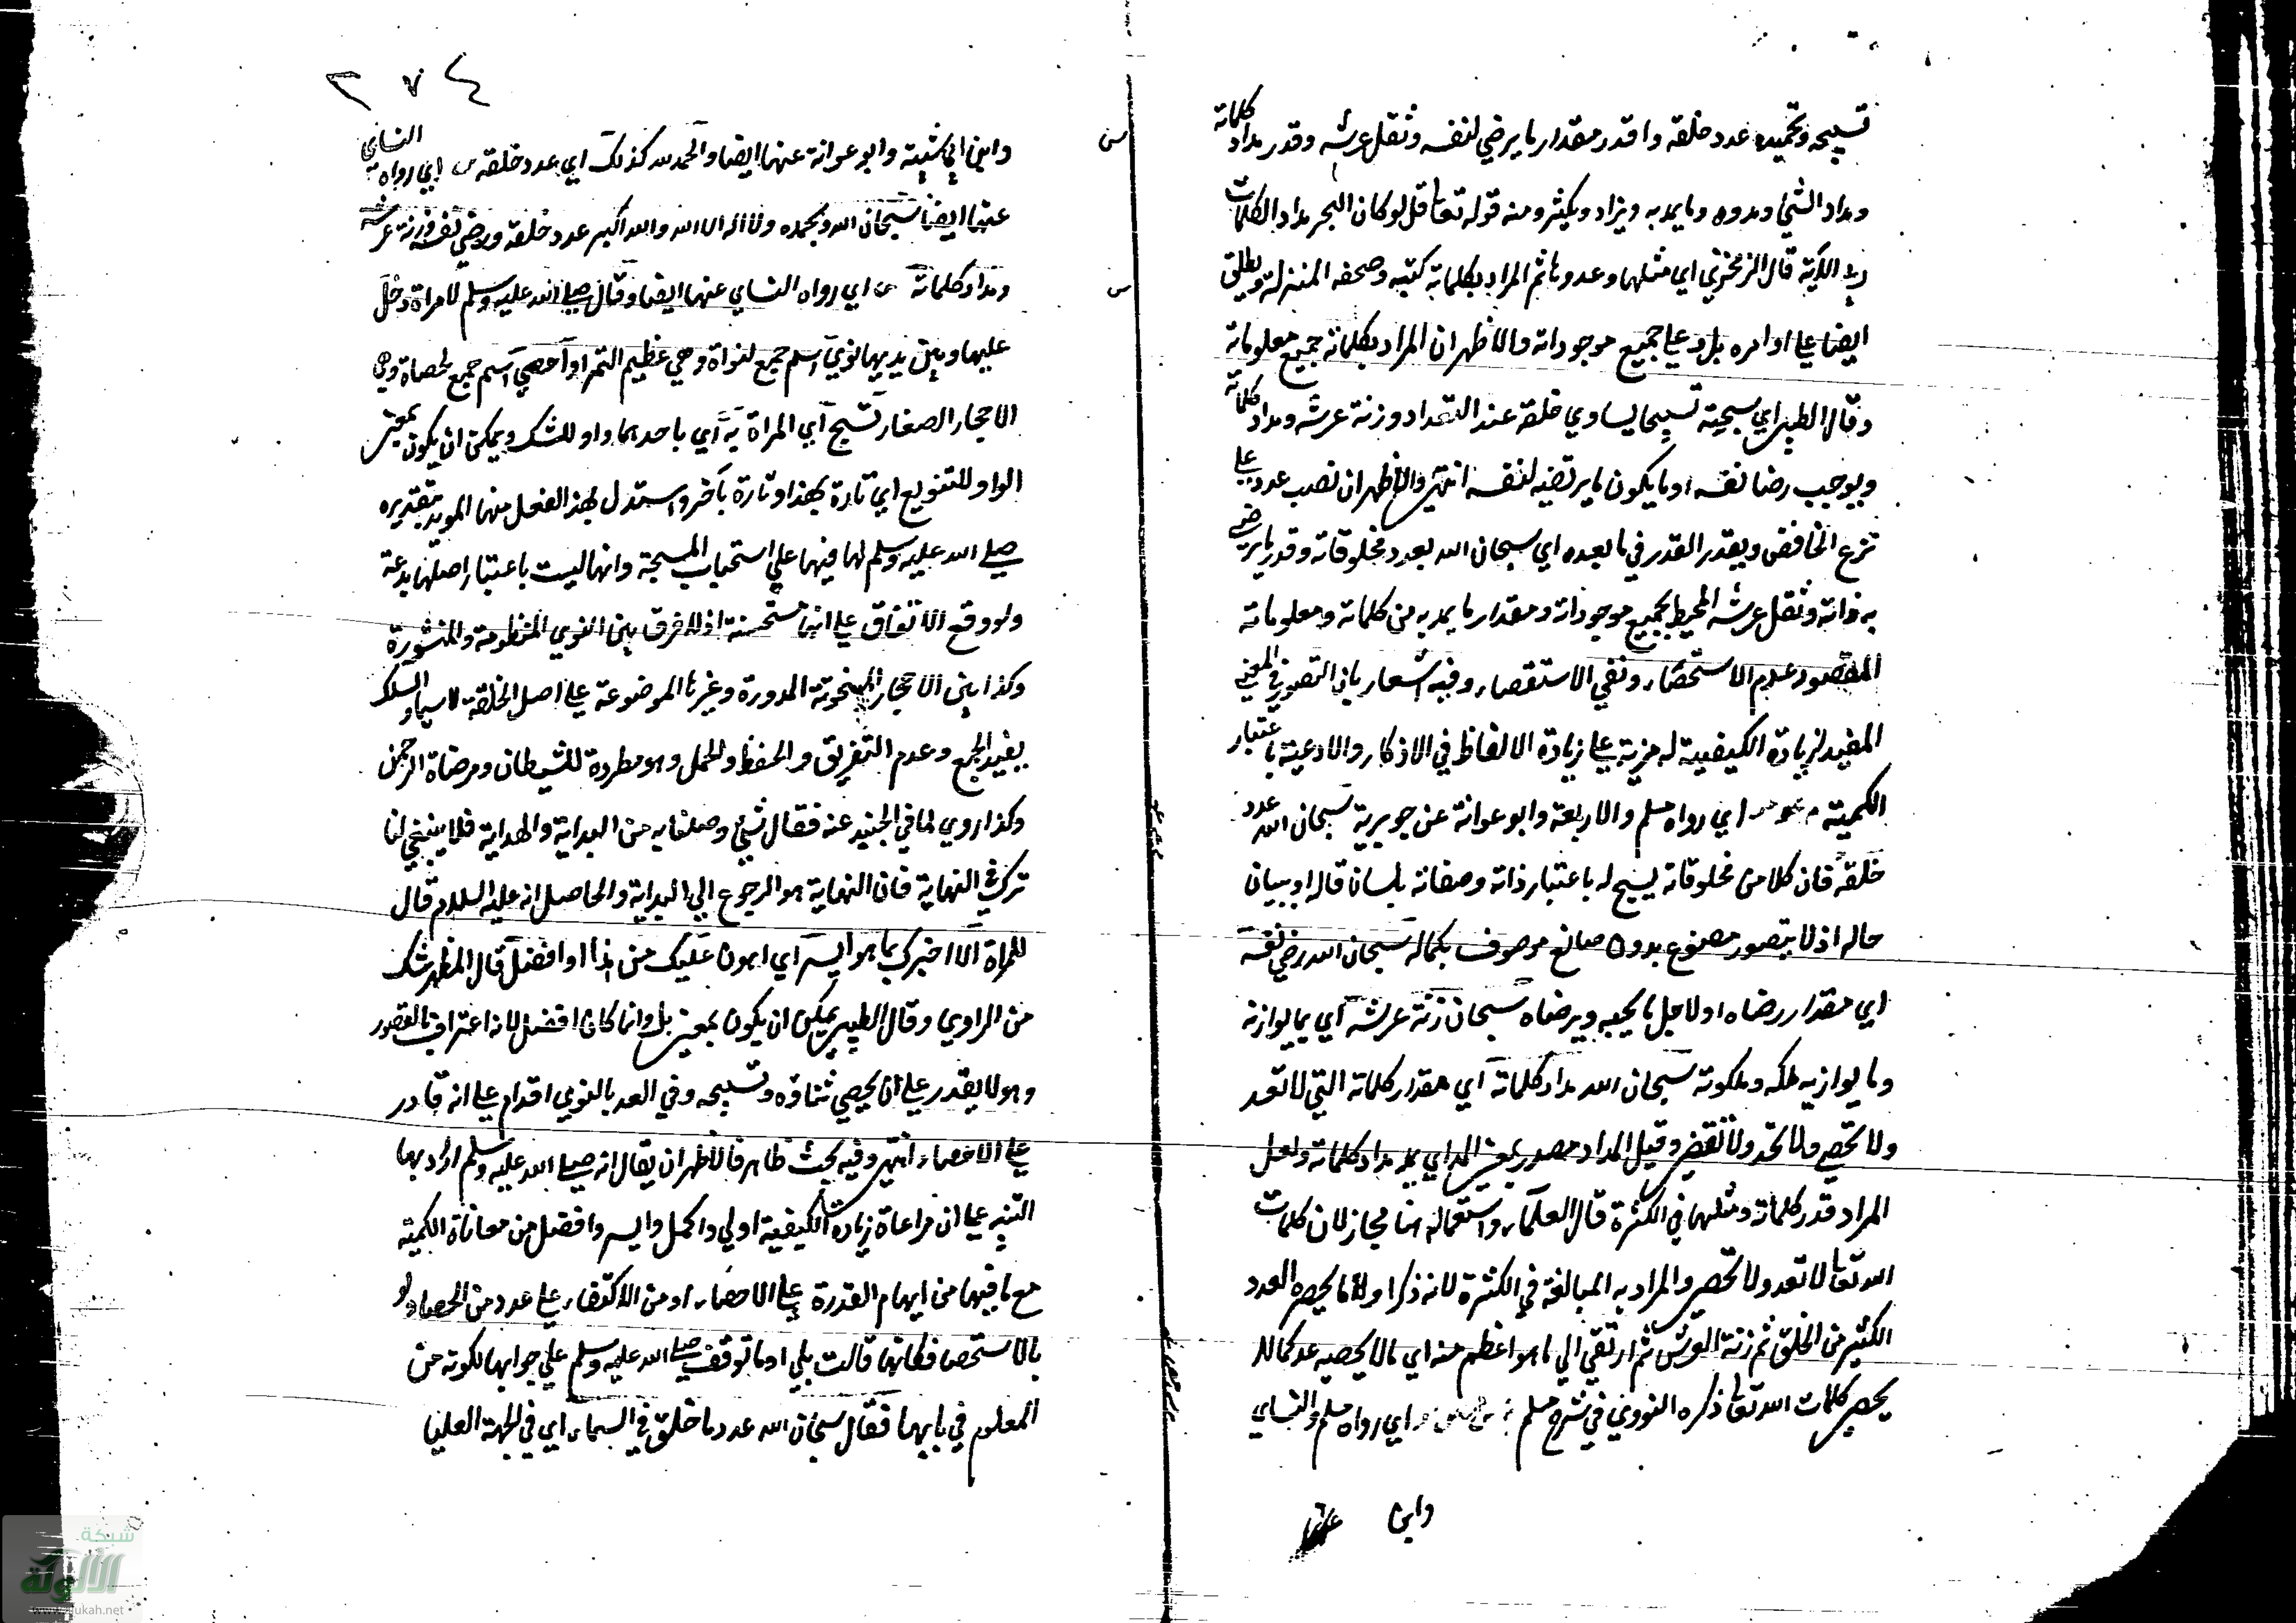 تسبيحه وتحميده عدد خلقه واقدر مقدار ما يرضي لنفسه وثقل عرشه وقدر مداد كلماته
ومداد الشي ومدده وما يمد به ويزاد ويكثر ومنه قوله تعالى قل لو كان البحر مدادا لكلمات
ربي الآية قال الزمخشري اي مثلها وعددها ثم المراد بكلماته كتبه وصحفه المنزلة ويطلق
ايضا على اوامره بل وعلى جميع موجوداته والاظهر ان المراد بكلماته جميع معلوماته
وقال الطيبي اي سبحته تسبيحا يساوي خلقه عند التعداد وزنة عرشه ومداد كلماته
ويوجب رضا نفسه او ما يكون ما يرتضيه لنفسه انتهى والاظهر ان نصب عدد على
نزع الخافض ويقدر القدر في ما بعده اي سبحان الله بعدد مخلوقاته وقدر ما يرضى
به ذاته وثقل عرشه المحيط بجميع موجوداته ومقدار ما يمد به من كلماته ومعلوماته
المقصود عدم الاستحضار ونفي الاستقصاء وفيه اشعار بان التصور في المعنى
المفيد لزيادة الكيفية له مزية على زيادة الالفاظ في الاذكار والادعية باعتبار
الكمية م عو اي رواه مسلم والاربعة وابو عوانة عن جويرية سبحان الله عدد
خلقه فان كلا من مخلوقاته يسبح له باعتبار ذاته وصفاته بلسان قاله او ببيان
حاله اذ لا يتصور مصنوع بدون صانع موصوف بكماله سبحان الله رضي نفسه
اي مقدار رضاه او لاجل ما يحبه ويرضاه سبحان زنة عرشه اي بما يوازنه
وما يوازيه ملكه وملكوته سبحان الله مداد كلماته اي مقدار كلماته التي لا تعد
ولا تحصى ولا تحد ولا تنقض وقيل المداد مصدر بمعنى المد اي يمد مداد كلماته ولعل
المراد قدر كلماته ومثلها في الكثرة قال العلماء واستعماله هنا مجاز لان كلمات
الله تعالى لا تعد ولا تحصر والمراد به المبالغة في الكثرة لانه ذكر اولا ما يحصره العدد
الكثير من الخلق ثم زنة العرش ثم ارتقى الى ما هو اعظم منه اي ما لا يحصيه عد كما لا
يحصى كلمات الله تعالى ذكره النووي في شرح مسلم اي رواه مسلم والنسائي
وابن
٢٧٤
وابن ابي شيبة وابو عوانة عنها ايضا والحمد لله كذلك اي عدد خلقه س اي رواه النسائي
عنها ايضا سبحان الله وبحمده ولا اله الا الله والله اكبر عدد خلقه ورضي نفسه وزنة عرشه
ومداد كلماته س اي رواه النسائي عنها ايضا وقال صلى الله عليه وسلم لامراة دخل
عليها وبين يديها نوى اسم جمع لنواة وهي عظيم التمر او حصى اسم جمع لحصاة وهي
الاحجار الصغار تسبح اي المراة به اي باحدهما واو للشك ويمكن ان يكون بمعنى
الواو للتنويع اي تارة بهذا وتارة بآخر واستدل بهذا الفعل منها المويد بتقديره
صلى الله عليه وسلم لها فيها على استحباب المسبحة وانها ليست باعتبار اصلها بدعة
ولو وقع الاتفاق على انها مستحسنة اذ لا فرق بين النوى المنظومة والمنثورة
وكذا بين الاحجار المنحوتة المدورة وغيرها الموضوعة على اصل الخلقة لا سيما والسلك
يفيد الجمع وعدم التفريق والحفظ والحمل وهو مطردة للشيطان ومرضاة الرحمن
وكذا روي لما في الجنيد عنه فقال شي وصلنا به من البداية والهداية فلا ينبغي لنا
تركه في النهاية فان النهاية هو الرجوع الى البداية والحاصل انه عليه السلام قال
للمراة الا اخبرك بما هو ايسر اي اهون عليك من هذا او افضل قال المظهر شك
من الراوي وقال الطيبي يمكن ان يكون بمعنى بل وانما كان افضل لانه اعتراف بالقصور
وهو لا يقدر على ان يحصي ثناؤه وتسبيحه وفي العد بالنوى اقدام على انه قادر
على الاحصاء انتهى وفيه بحث ظاهر فالاظهر ان يقال انه صلى الله عليه وسلم اراد بها
التنبيه على ان مراعاة زيادة الكيفية اولى واكمل وايسر وافضل من معاناة الكمية
مع ما فيها من ايهام القدرة على الاحصاء او من الاكتفاء على عدد من الحصا ولو
بالاستحصا فكانها قالت بلى او ما توقف صلى الله عليه وسلم على جوابها لكونه من
المعلوم في بابها فقال سبحان الله عدد ما خلق في السماء اي في الجهة العليا
شبكة
الألوكة
www.alukah.net